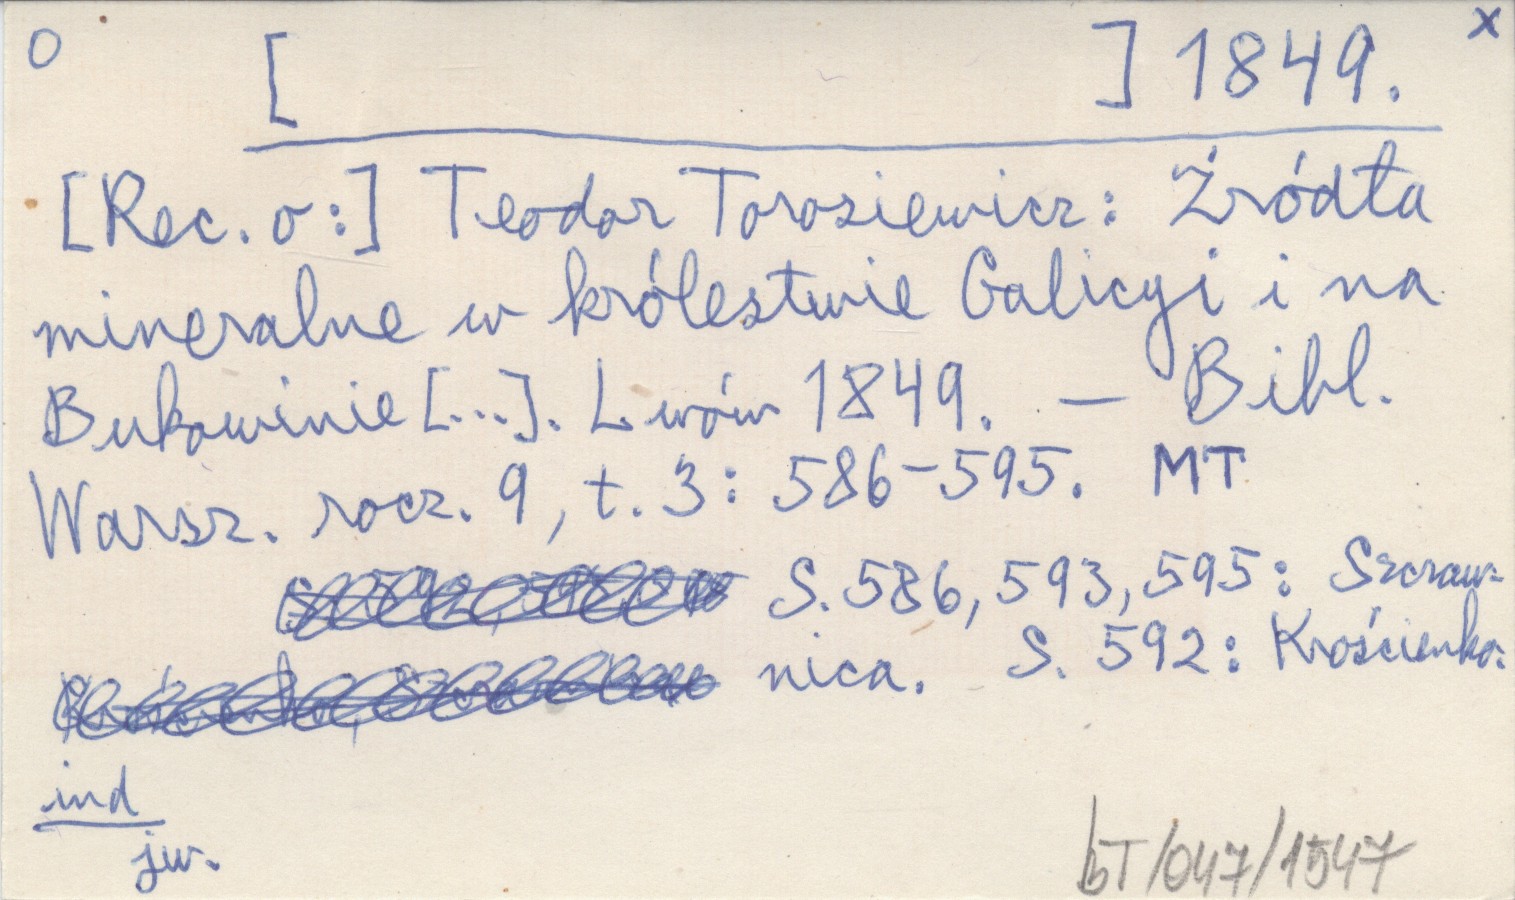 O [ ] 1849. x
[Rec. o:] Teodor Torosiewicz: Źródła
mineralne w królestwie Galicyi i na
Bukowinie [...]. Lwów 1849. — Bibl.
Warsz. rocz. 9, t. 3: 586-595. MT
S. 586, 593, 595: Szczaw-
nica. S. 592: Krościenko.
ind
jw.
bT/047/1547